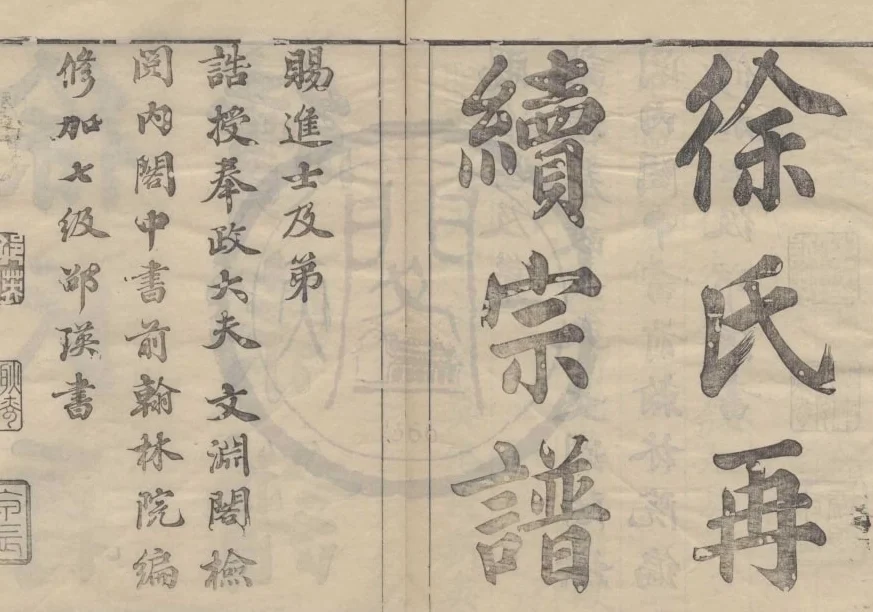 徐氏再
續宗譜
賜進士及弟
誥授奉政大夫 文淵閣檢
閱內閣中書前翰林院編
修加七級邵瑛書